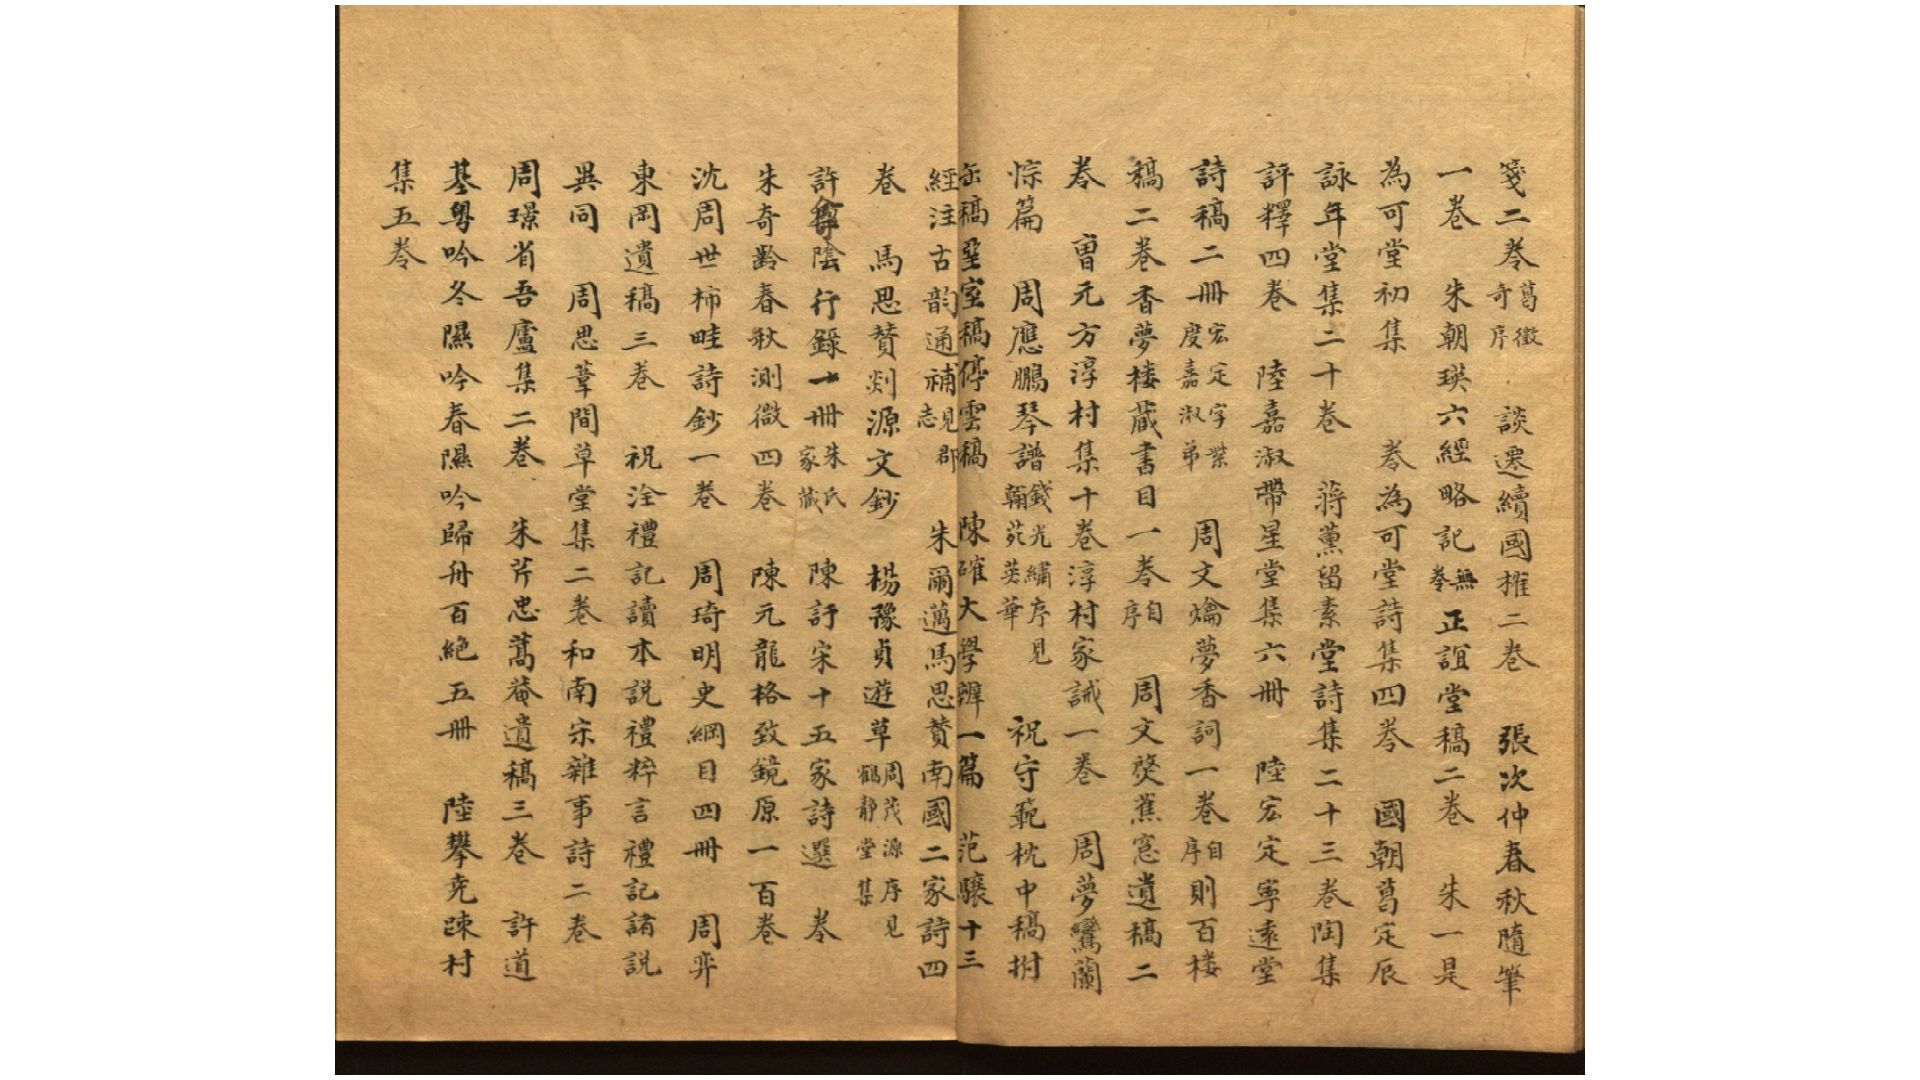 箋二卷葛徵奇序 談遷續國榷二卷 張次仲春秋隨筆
一卷 朱朝瑛六經略記無卷正誼堂稿二卷 朱一是
為可堂初集 卷為可堂詩集四卷 國朝葛定辰
詠年堂集二十卷 蔣薰留素堂詩集二十三卷陶集
評釋四卷 陸嘉淑帶星堂集六冊 陸宏定寧遠堂
詩稿二冊宏定字紫度嘉淑弟 周文爚夢香詞一卷自序則百樓
稿二卷香夢樓藏書目一卷自序 周文燹蕉窓遺稿二
卷 曹元方淳村集十卷淳村家誡一卷 周夢鸞蘭
悰篇 周應鵬琴譜錢光繡序見翰苑英華 祝守範枕中稿拊
缶稿堊室稿停雲稿 陳確大學辨一篇 范驤十三
經注古韵通補見郡志 朱爾邁馬思贊南國二家詩四
卷 馬思贊剡源文鈔 楊豫貞遊草周茂源序見鶴靜堂集
許 陰行錄一冊朱氏家藏 陳訏宋十五家詩選 卷
朱奇齡春秋測微四卷 陳元龍格致鏡原一百卷
沈周世柿畦詩鈔一卷 周琦明史綱目四冊 周弈
東岡遺稿三卷 祝洤禮記讀本說禮粹言禮記諸說
異同 周思葦間草堂集二卷和南宋雜事詩二卷
周璟省吾廬集二卷 朱芹忠蒿菴遺稿三卷 許道
基粵吟冬隰吟春隰吟歸舟百絶五冊 陸攀堯踈村
集五卷